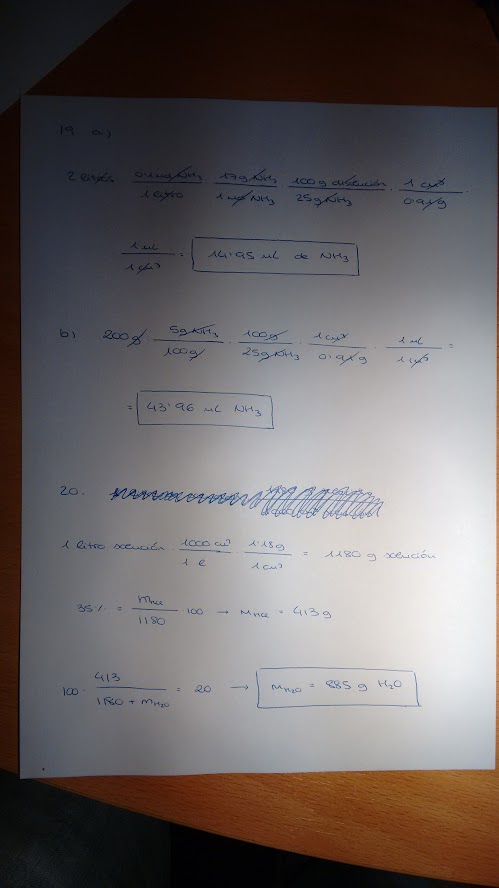 19 a)
2 litros · 0'1 mol NH₃ / 1 litro · 17g NH₃ / 1 mol NH₃ · 100g disolución / 25g NH₃ · 1 cm³ / 0'91g ·
1 mL / 1 cm³ = 14'95 mL de NH₃
b) 200g · 5g NH₃ / 100g · 100g / 25g NH₃ · 1 cm³ / 0'91g · 1 mL / 1 cm³ =
= 43'96 mL NH₃
20.
1 litro · 1000 cm³ / 1 l · 1'18g / 1 cm³ = 1180 g
35% = mHCl / 1180 · 100 → mHCl = 413g
100 · 413 / 1180 + mH₂O = 20 → mH₂O = 885 g H₂O